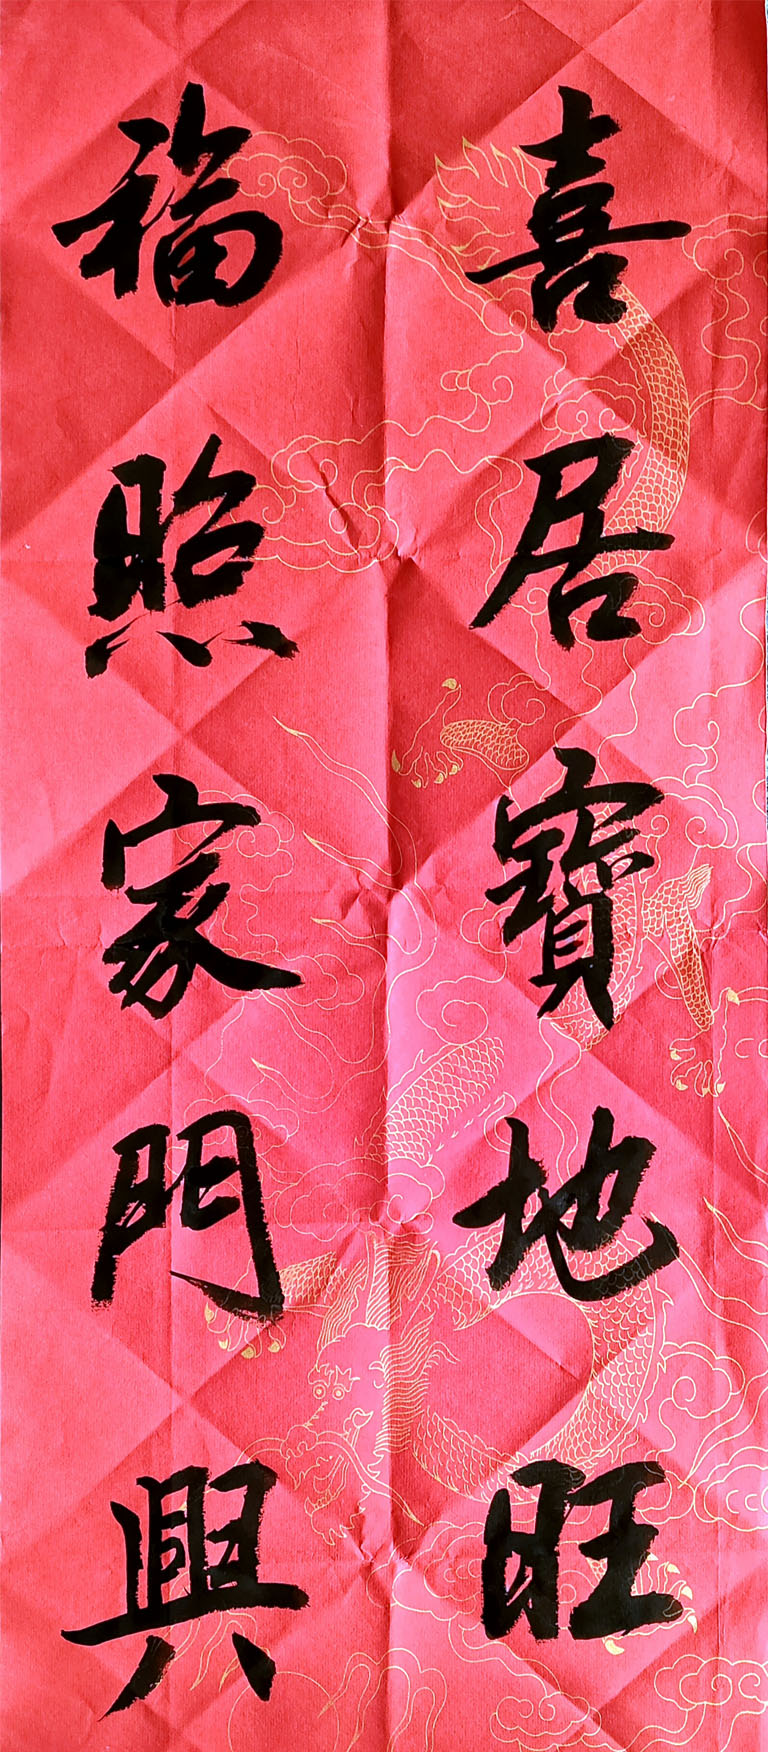 喜居寶地旺
福照家門興